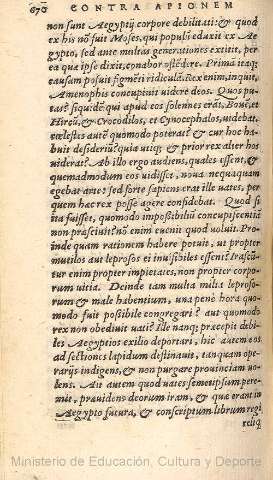 670 CONTRA APIONEM
non sunt Aegyptij corpore debilitati: & quòd
ex his nō fuit Moses, qui populũ eduxit ex Ae
gypto, sed ante multas generationes extitit, per
ea quæ ipse dixit, conabor oſtēdere. Prima itaq;
causam posuit figmēti ridiculā. Rex enim, inquit,
Amenophis concupiuit videre deos. Quos pu-
tas? siquidē qui apud eos solennes erāt, Bouē, et
Hircũ, & Crocodilos, et Cynocephalos, videbat,
cœlestes autē quomodo poterat? & cur hoc ha-
buit desideriũ? quia vtiq; & prior rex alter hos
viderat? Ab illo ergo audiens, quales essent, &
quemadmodum eos vidisset, noua nequaquam
egebat arte: sed fortè sapiens erat ille vates, per
quem hac rex posse agere confidebat. Quod si
ita fuisset, quomodo impossibilē concupiscentiā
non præsciuit? nō enim euenit quod voluit. Pro-
inde quam rationem habere potuit, vt propter
mutilos aut leprosos ei inuisibiles essent? irascũ-
tur enim propter impietates, non propter corpo-
rum vitia. Deinde tam multa milia leproso-
rum & malè habentium, vna penè hora quo-
modo fuit possibile congregari? aut quomodo
rex non obediuit vati? Ille nanq; præcepit debi-
les Aegyptios exilio deportari, hic autem eos
ad sectiones lapidum destinauit, tanquam ope-
rarijs indigens, & non purgare prouinciam vo-
lens. Ait autem quod vates semetipsum pere-
mit, præuidens deorum iram, & quæ erant in
Aegypto futura, & conscriptum librum regi
reliq
Ministerio de Educación, Cultura y Deporte